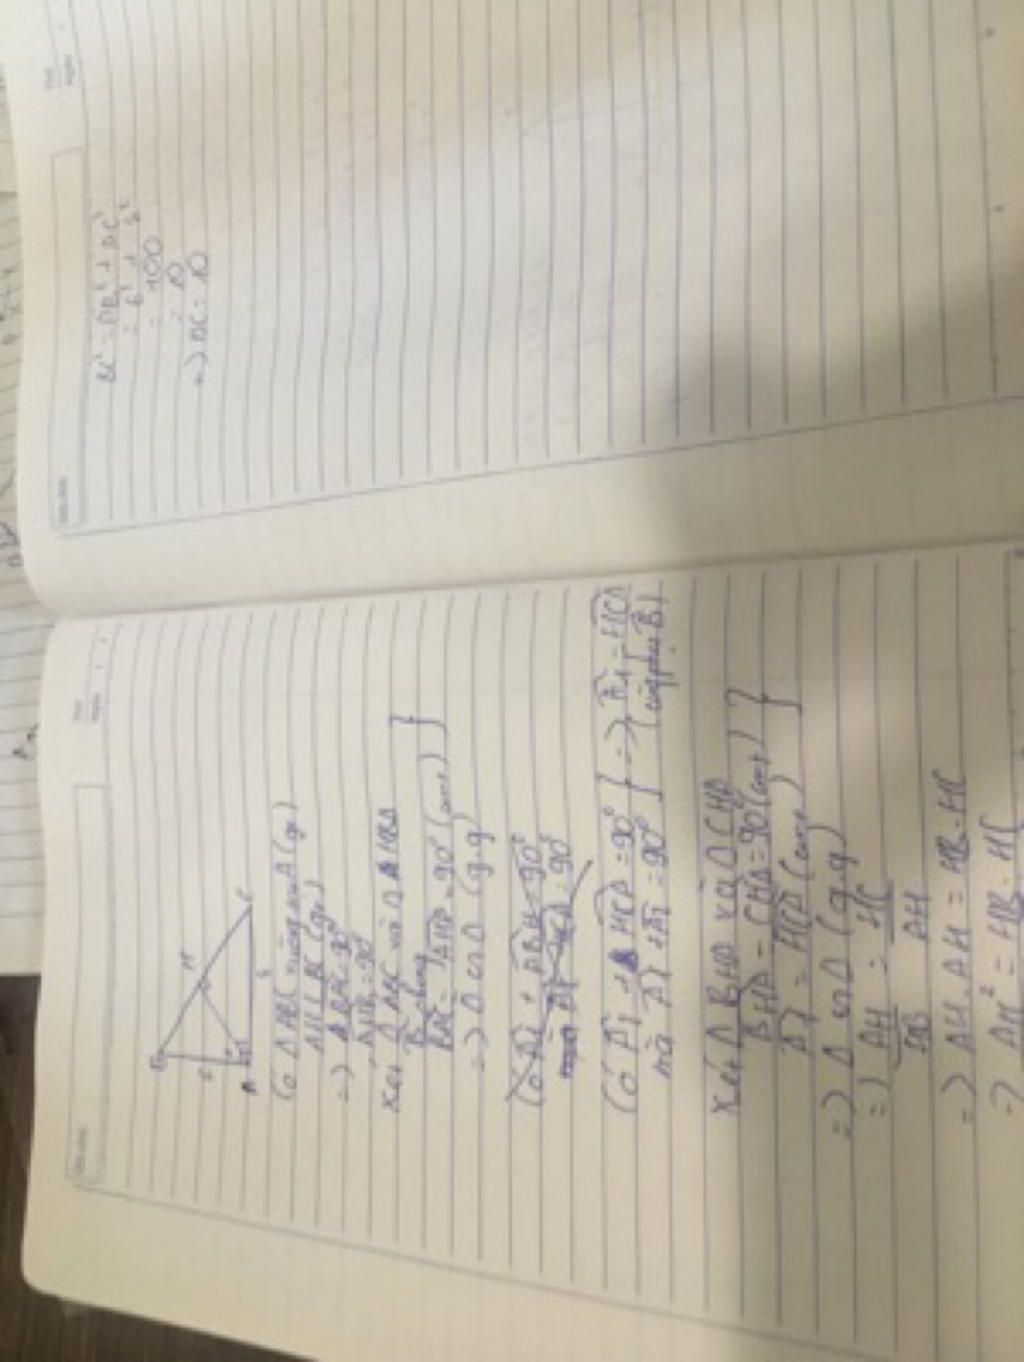 B
H
C
6
8
A
Có Δ ABC vuông tại A (gt)
AH ⊥ BC (gt)
=) BAC = 90°
AHB = 90°
Xét Δ ABC và Δ HBA
B chung
BAC = AHB = 90° (cmt) }
=) Δ ∽ Δ (g.g)
Có A1 + ABH = 90°
Có A1 + HCA = 90° } =) A1 = HCA
mà A1 + = 90°
(cùng phụ B)
Xét Δ BHA và Δ CHA
BHA = CHA = 90° (cmt) }
A1 = HCA (cmt)
=) Δ ∽ Δ (g.g)
=) AH = HC
HB AH
=) AH . AH = HB . HC
=) AH² = HB . HC
BC² = AB² + AC²
= 6² + 8²
= 100
= 10
=) BC = 10